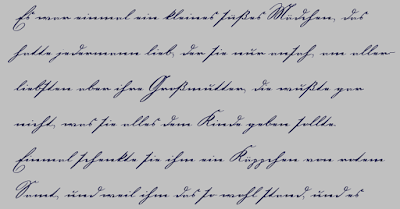 Es war einmal ein kleines süßes Mädchen, das
hatte jedermann lieb, der sie nur ansah, am aller
liebsten aber ihre Großmutter, die wußte gar
nicht, was sie alles dem Kinde geben sollte.
Einmal schenkte sie ihm ein Käppchen von rotem
Samt, und weil ihm das so wohl stand, und es